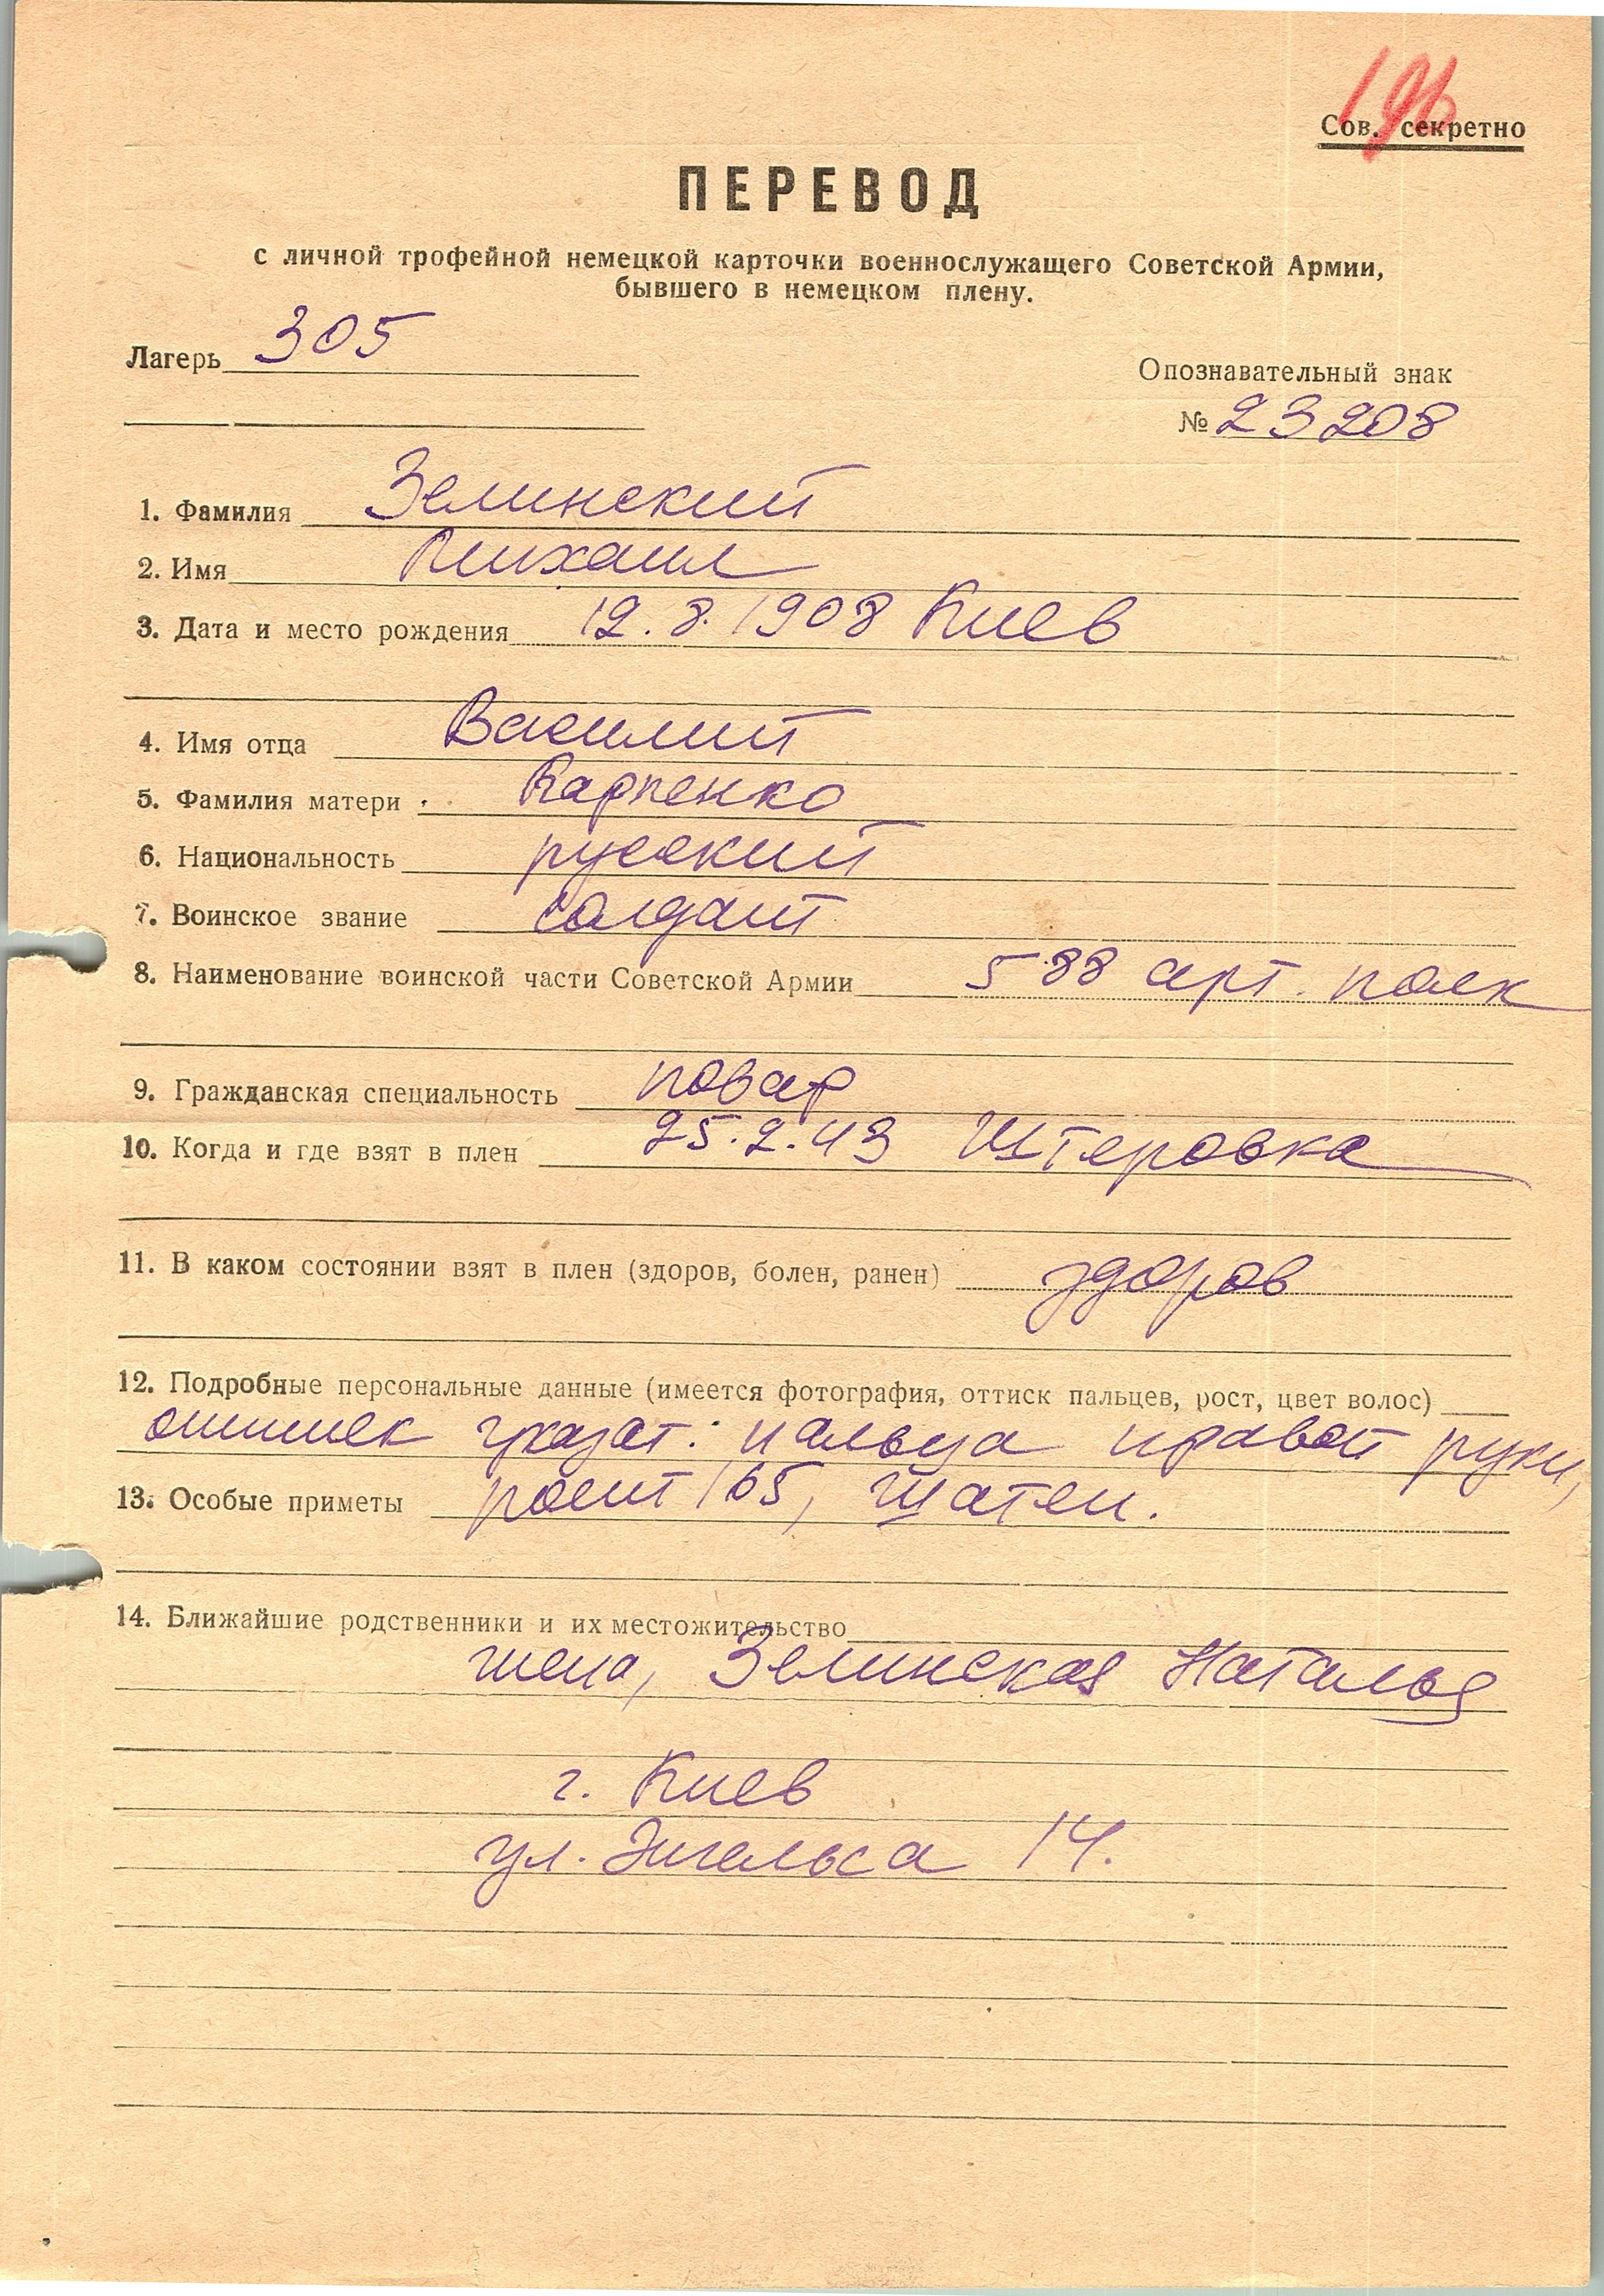 196
Сов. секретно
ПЕРЕВОД
с личной трофейной немецкой карточки военнослужащего Советской Армии,
бывшего в немецком плену.
Лагерь 305
Опознавательный знак
№ 23208
1. Фамилия Зелинский
2. Имя Михаил
3. Дата и место рождения 12.8.1908 Киев
4. Имя отца Василий
5. Фамилия матери Карпенко
6. Национальность русский
7. Воинское звание солдат
8. Наименование воинской части Советской Армии 588 арт. полк
9. Гражданская специальность повар
10. Когда и где взят в плен 25.2.43 Штеровка
11. В каком состоянии взят в плен (здоров, болен, ранен) здоров
12. Подробные персональные данные (имеется фотография, оттиск пальцев, рост, цвет волос)
оттиск указат. пальца правой руки,
13. Особые приметы рост 165, шатен.
14. Ближайшие родственники и их местожительство
жена, Зелинская Наталья
г. Киев
ул. Энгельса 14.